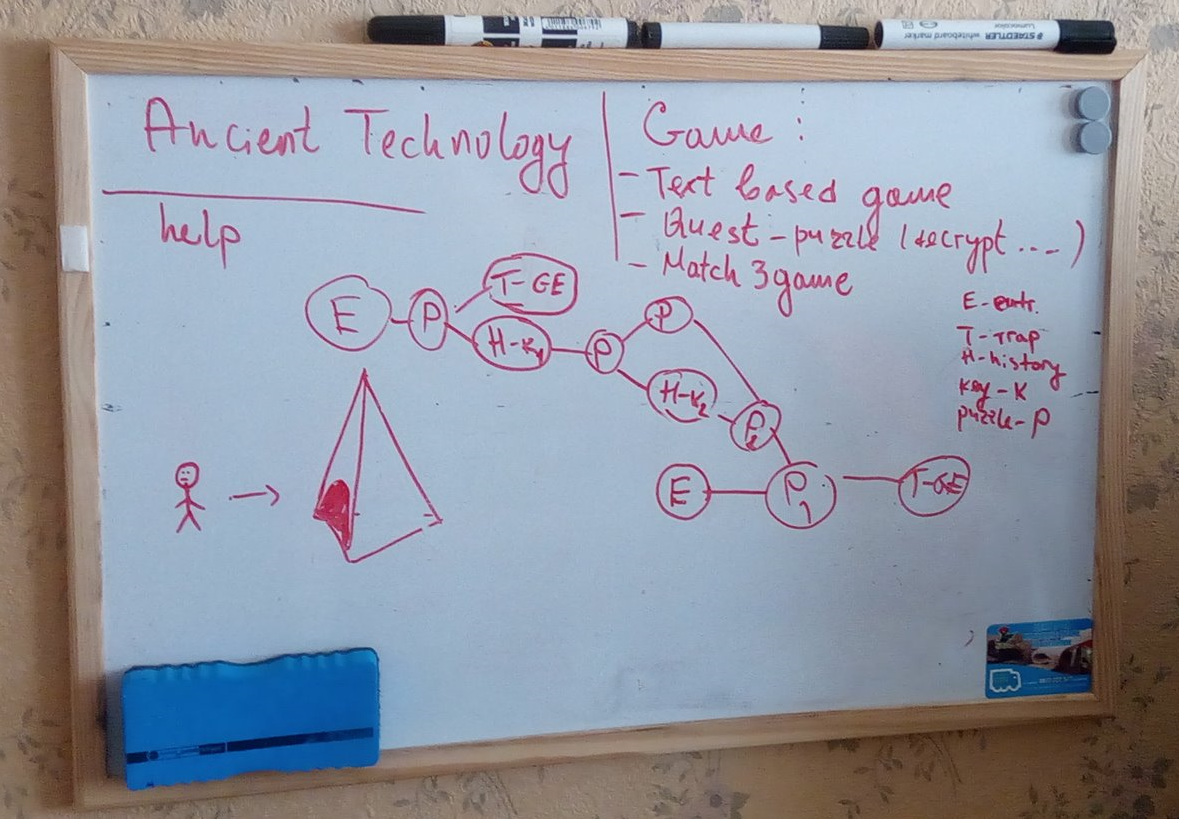 STAEDTLER whiteboard marker
Lumocolor
Ancient Technology
help
Game :
- Text based game
- Quest - puzzle (decrypt ....)
- Match 3 game
E - entr.
T - Trap
H - history
key - K
puzzle - P
E
P
T - GE
H - K1
P
P
H - K2
P2
E
P1
T - GE